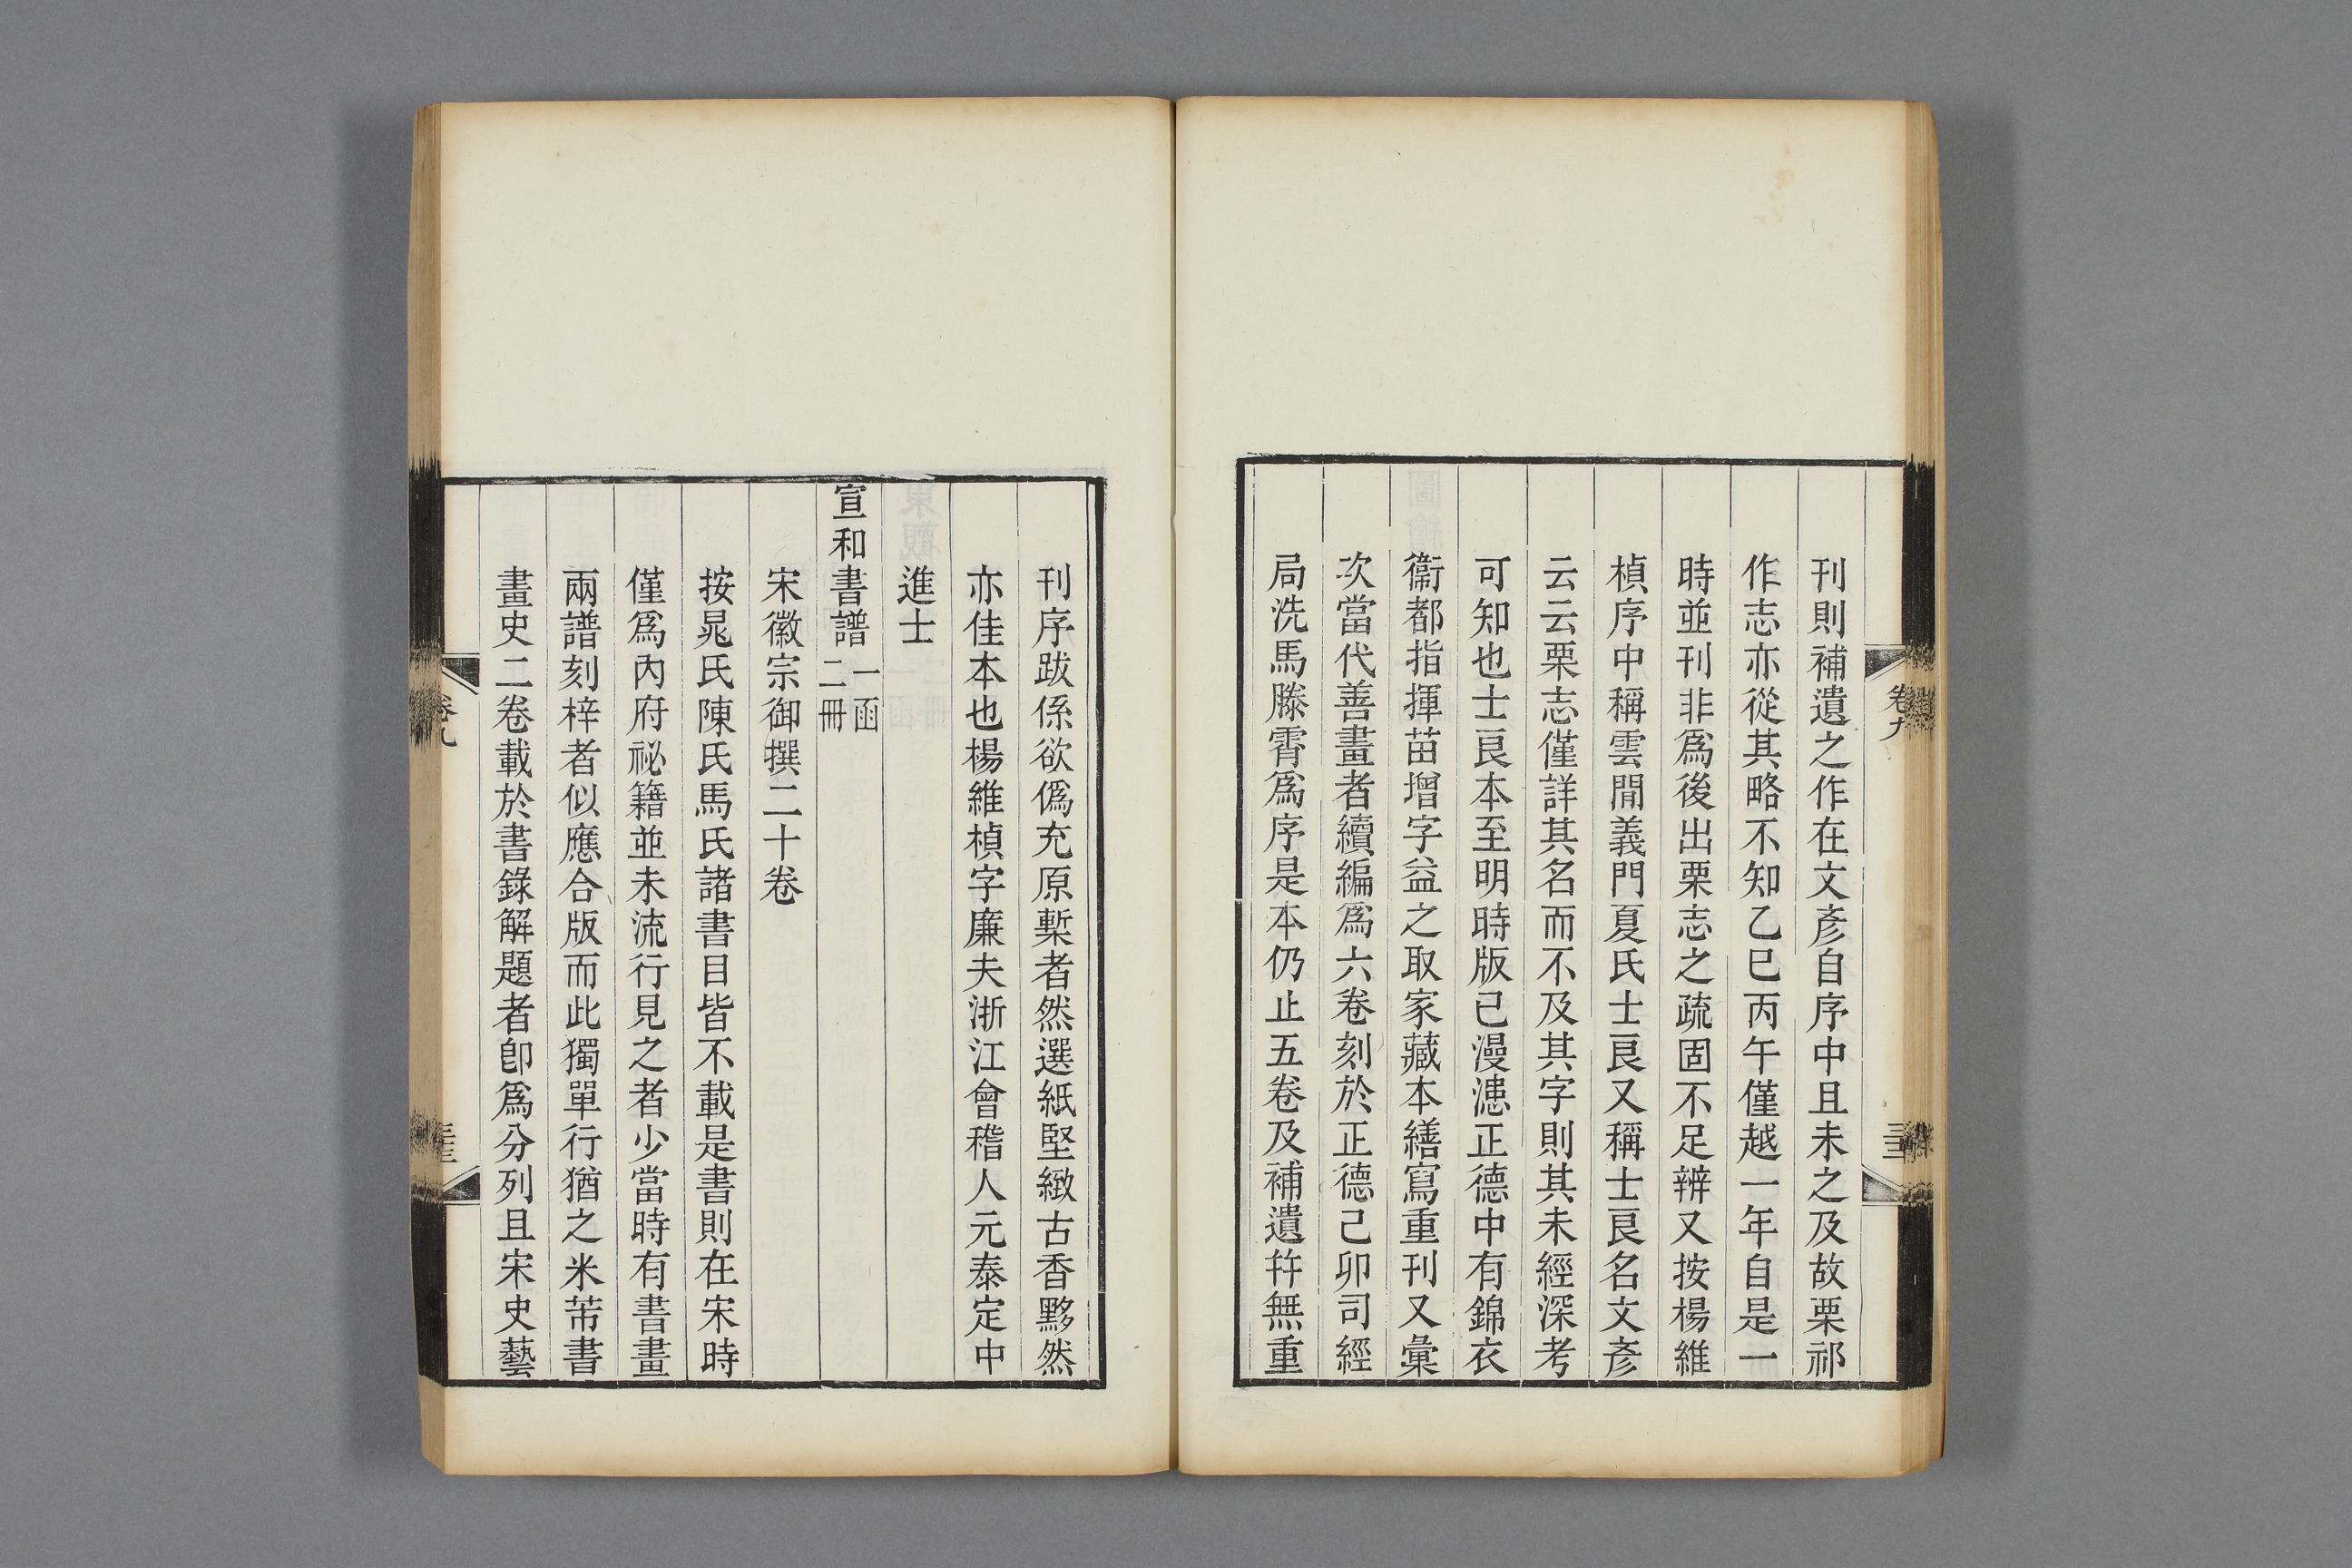 刊則補遺之作在文彥自序中且未之及故栗祁
作志亦從其略不知乙巳丙午僅越一年自是一
時並刊非爲後出栗志之疏固不足辨又按楊維
楨序中稱雲閒義門夏氏士良又稱士良名文彥
云云栗志僅詳其名而不及其字則其未經深考
可知也士良本至明時版已漫漶正德中有錦衣
衞都指揮苗增字益之取家藏本繕寫重刊又彙
次當代善畫者續編爲六卷刻於正德己卯司經
局洗馬滕霄爲序是本仍止五卷及補遺幷無重
卷九
刊序跋係欲僞充原槧者然選紙堅緻古香黟然
亦佳本也楊維楨字廉夫浙江會稽人元泰定中
進士
宣和書譜 一函二冊
宋徽宗御撰二十卷
按晁氏陳氏馬氏諸書目皆不載是書則在宋時
僅爲內府祕籍並未流行見之者少當時有書畫
兩譜刻梓者似應合版而此獨單行猶之米芾書
畫史二卷載於書錄解題者卽爲分列且宋史藝
卷九